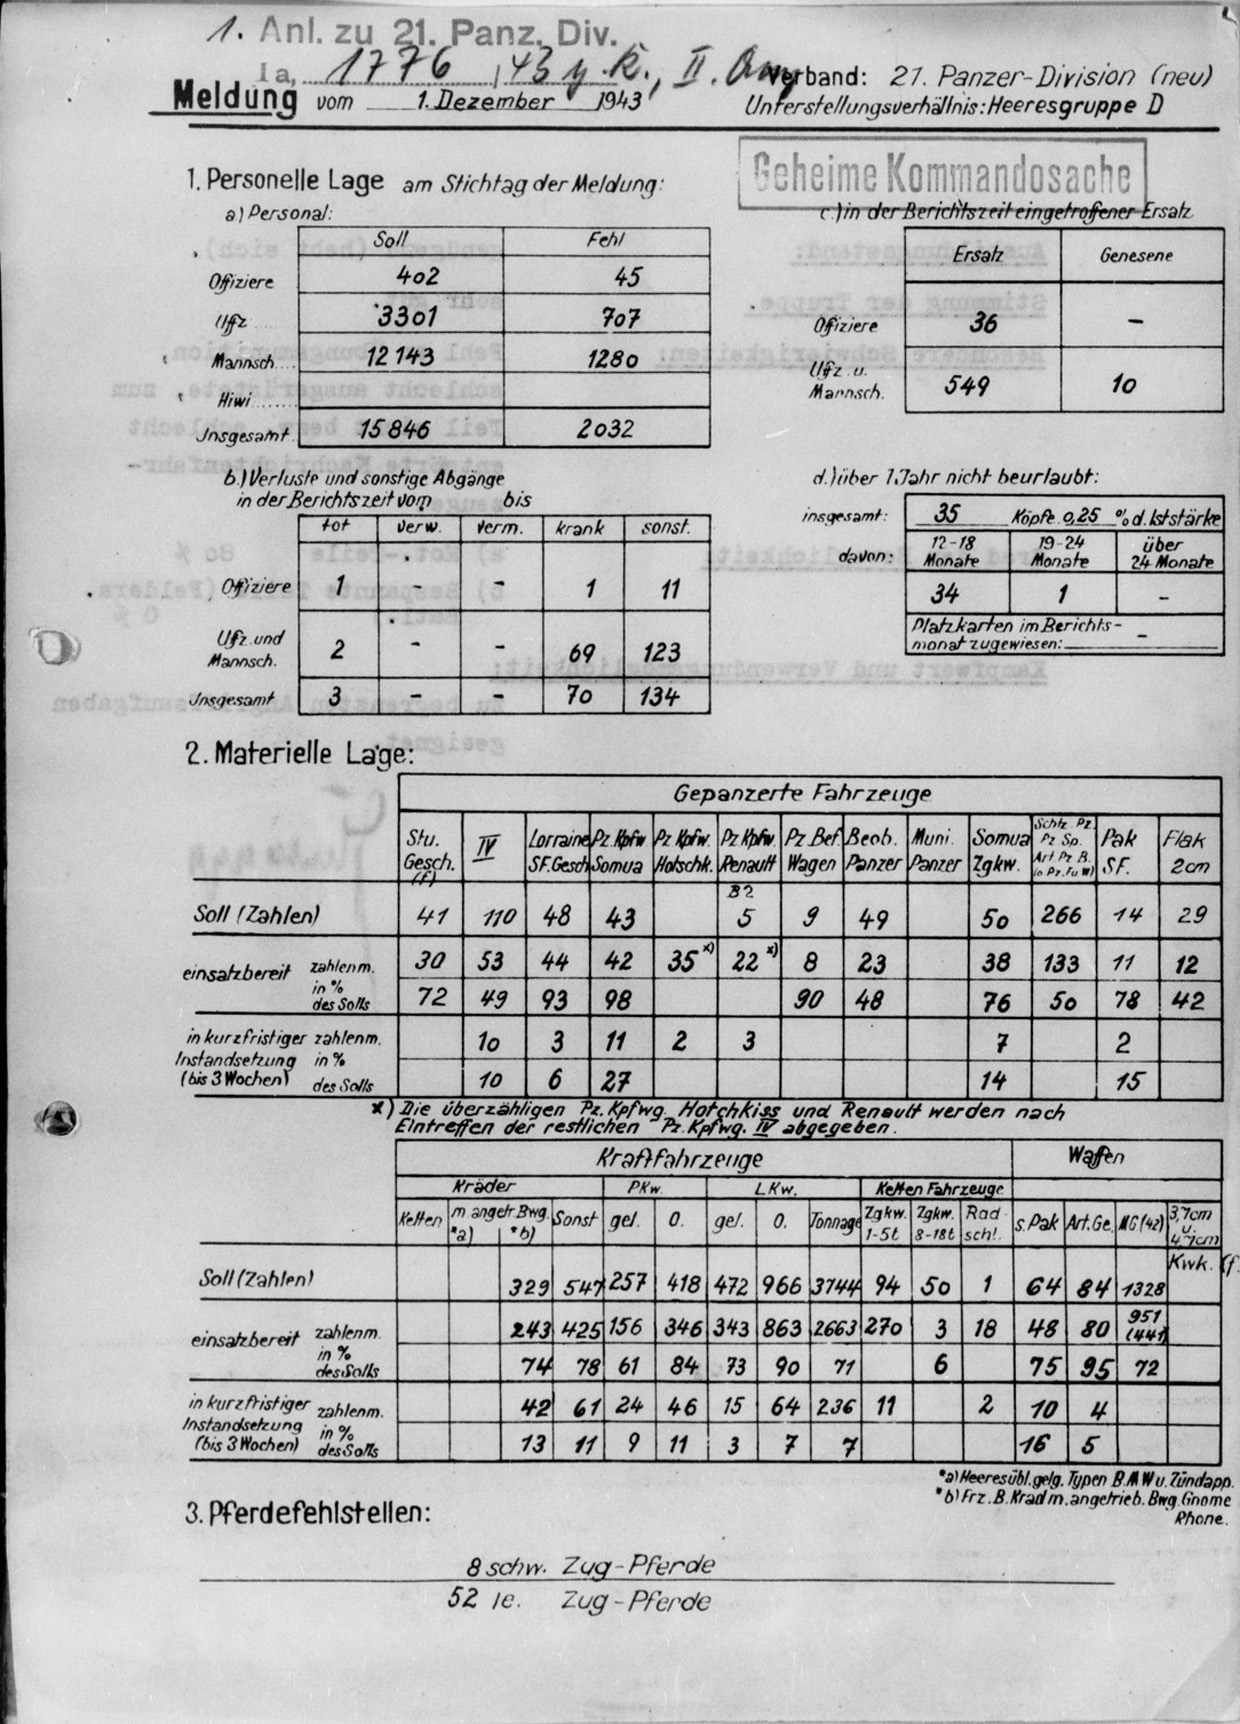 1. Anl. zu 21. Panz. Div.
Ia, 1776 / 43 g. K., II. Ang
Meldung vom 1. Dezember 1943
Verband: 21. Panzer-Division (neu)
Unterstellungsverhältnis: Heeresgruppe D
Geheime Kommandosache
1. Personelle Lage am Stichtag der Meldung:
a) Personal:
Soll Fehl
Offiziere 402 45
Uffz 3301 707
Mannsch.... 12 143 1280
Hiwi........
Jnsgesamt. 15 846 2032
c.) in der Berichtszeit eingetroffener Ersatz
Ersatz Genesene
Offiziere 36 –
Uffz. u. Mannsch. 549 10
b.) Verluste und sonstige Abgänge
in der Berichtszeit vom bis
tot verw. verm. krank sonst.
Offiziere 1 – – 1 11
Uffz. und Mannsch. 2 – – 69 123
Jnsgesamt 3 – – 70 134
d.) über 1 Jahr nicht beurlaubt:
insgesamt: 35 Köpfe 0,25 % d. Iststärke
davon: 12-18 Monate 19-24 Monate über 24 Monate
34 1 –
Platzkarten im Berichts-
monat zugewiesen: –
2. Materielle Lage:
Gepanzerte Fahrzeuge
Stu. Gesch. (f) IV Lorraine SF. Gesch Pz. Kpfw. Somua Pz Kpfw. Hotschk. Pz Kpfw. Renault Pz. Bef. Wagen Beob. Panzer Muni. Panzer Somua Zgkw. Schtz. Pz. Pz. Sp. Art. Pz. B. (o Pz. Fu W) Pak SF. Flak 2cm
B2
Soll (Zahlen) 41 110 48 43 5 9 49 50 266 14 29
einsatzbereit zahlenm. 30 53 44 42 35 x) 22 x) 8 23 38 133 11 12
in % des Solls 72 49 93 98 90 48 76 50 78 42
in kurzfristiger zahlenm. 10 3 11 2 3 7 2
Instandsetzung in %
(bis 3 Wochen) des Solls 10 6 27 14 15
x) Die überzähligen Pz. Kpfwg. Hotchkiss und Renault werden nach
Eintreffen der restlichen Pz. Kpfwg. IV abgegeben.
Kraftfahrzeuge Waffen
Kräder PKw. LKw. Ketten Fahrzeuge
Ketten m. angetr. Bwg. *a) *b) Sonst gel. O. gel. O. Tonnage Zgkw. 1-5t Zgkw. 8-18t Rad schl. s. Pak Art. Ge. MG (42) 3,7cm u. 4,7cm
Kwk. (f.
Soll (Zahlen) 329 547 257 418 472 966 3744 94 50 1 64 84 1328
einsatzbereit zahlenm. 243 425 156 346 343 863 2663 270 3 18 48 80 951 (441)
in % des Solls 74 78 61 84 73 90 71 6 75 95 72
in kurzfristiger zahlenm. 42 61 24 46 15 64 236 11 2 10 4
Instandsetzung in %
(bis 3 Wochen) des Solls 13 11 9 11 3 7 7 16 5
*a) Heeresübl. gelg. Typen B.M.W u. Zündapp.
*b) Frz. B. Krad m. angetrieb. Bwg. Gnome
Rhone.
3. Pferdefehlstellen:
8 schw. Zug-Pferde
52 le. Zug-Pferde